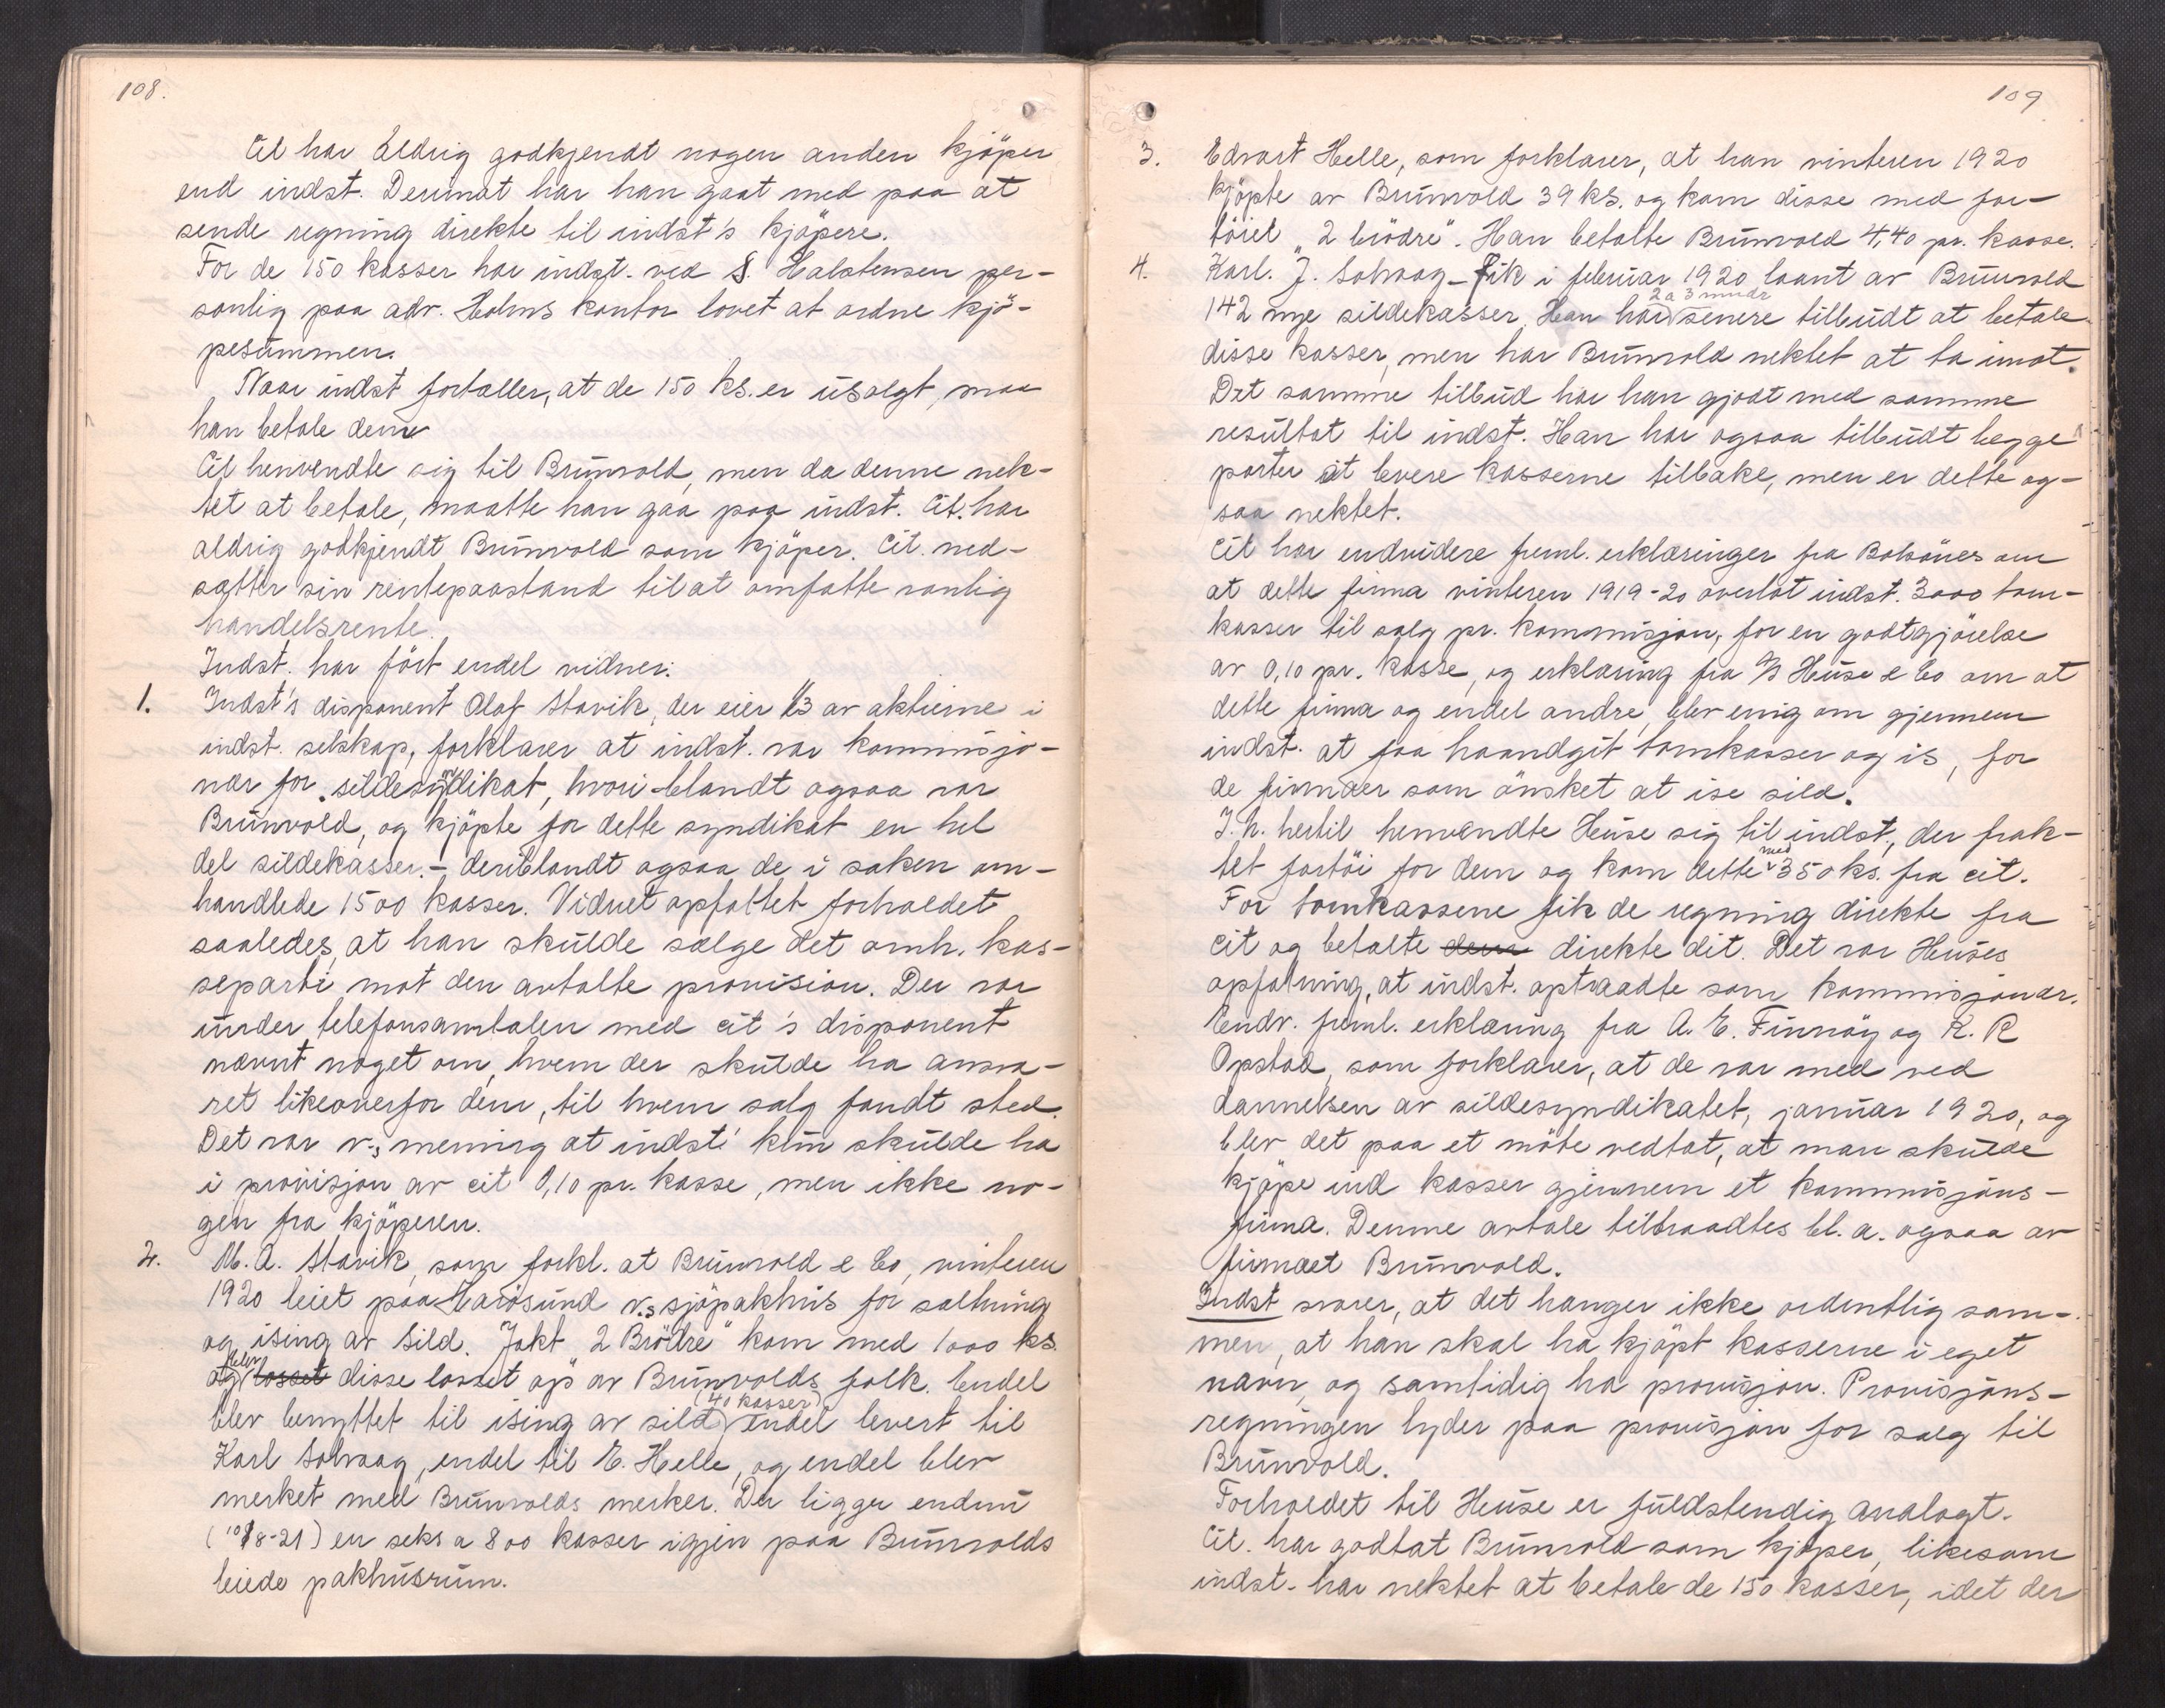 108.
Cit har aldrig godkjendt nogen anden kjöper
end indst. Derimot har han gaat med paa at
sende regning direkte til indst's kjöpere.
For de 150 kasser har indst. ved S. Halstensen per-
sonlig paa adv. Holms kontor lovet at ordne kjö-
pesummen.
Naar indst fortæller, at de 150 ks. er usolgt, maa
han betale dem
Cit henvendte sig til Brunvold, men da denne nek-
tet at betale, maatte han gaa paa indst. Cit. har
aldrig godkjendt Brunvold som kjöper. Cit. ned-
sætter sin rentepaastand til at omfatte vanlig
handelsrente.
Indst. har fört endel vidner:
1. Indst's disponent Olaf Stavik, der eier 1/3 av aktierne i
indst. selskap, forklarer at indst. var kommisjo-
nær for sildesyndikat, hvori blandt ogsaa var
Brunvold, og kjöpte for dette syndikat en hel
del sildekasser. - deriblandt ogsaa de i saken om-
handlede 1500 kasser. Vidnet opfattet forholdet
saaledes, at han skulde sælge det omh. kas-
separti mot den avtalte provision. Der var
under telefonsamtalen med cit's disponent
nævnt noget om, hvem der skulde ha ansva-
ret likeoverfor dem, til hvem salg fandt sted.
Det var v.s mening at indst. kun skulde ha
i provisjon av cit 0,10 pr. kasse, men ikke no-
gen fra kjöperen.
2. M. A. Stavik, som forkl. at Brunvold & Co, vinteren
1920 leiet paa Haröysund v.s sjöpakhus for saltning
og ising av sild. Jakt "2 Brödre" kom med 1000 ks.
og blev losset disse losset op av Brunvolds folk. Endel
blev benyttet til ising av sild (40 kasser) endel levert til
Karl Solvaag, endel til E. Helle, og endel blev
merket med Brunvolds merker. Der ligger endnu
(10/8-21) en seks a 800 kasser igjen paa Brunvolds
leiede pakhusrum.
109
3. Edvart Helle, som forklarer, at han vinteren 1920
kjöpte av Brunvold 39 ks. og kom disse med far-
töiet "2 brödre". Han betalte Brunvold 4,40 pr. kasse.
4. Karl. J. Solvaag - fik i februar 1920 laant av Brunvold
142 nye sildekasser. Han har 2 a 3 mndr senere tilbudt at betale
disse kasser, men har Brunvold nektet at ta imot.
Det samme tilbud har han gjort med samme
resultat til indst. Han har ogsaa tilbudt begge
parter at levere kasserne tilbake, men er dette og-
saa nektet.
Cit har endvidere freml. erklæringer fra Bolsönes om
at dette firma vinteren 1919-20 overlot indst. 3000 tom-
kasser til salg pr. kommisjon, for en godtgjörelse
av 0,10 pr. kasse, og erklæring fra Heuse & Co om at
dette firma og endel andre, blev enig om gjennem
indst. at faa haandgit tomkasser og is, for
de firmaer som önsket at ise sild.
I. h. hertil henvendte Heuse sig til indst., der frak-
tet fartöi for dem og kom dette med 350 ks. fra cit.
For tomkassene fik de regning direkte fra
cit og betalte dem direkte dit. Det var Heuses
opfatning, at indst. optraadte som kommisjonær.
Endv. freml. erklæring fra A. E. Finnöy og K. R
Opstad, som forklarer, at de var med ved
dannelsen av sildesyndikatet, januar 1920, og
blev det paa et möte vedtat, at man skulde
kjöpe ind kasser gjennem et kommisjons-
firma. Denne avtale tiltraadtes bl. a. ogsaa av
firmaet Brunvold.
Indst svarer, at det hænger ikke ordentlig sam-
men, at han skal ha kjöpt kasserne i eget
navn, og samtidig ha provisjon. Provisjons-
regningen lyder paa provisjon for salg til
Brunvold.
Forholdet til Heuse er fuldstendig analogt.
Cit. har godtat Brunvold som kjöper, likesom
indst. har nektet at betale de 150 kasser, idet der